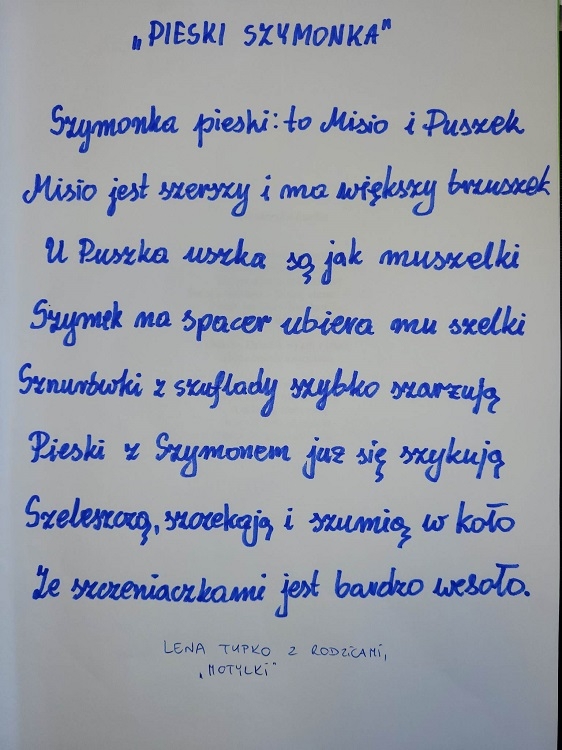 „PIESKI SZYMONKA"
Szymonka pieski: to Misio i Puszek
Misio jest szerszy i ma większy brzuszek
U Puszka uszka są jak muszelki
Szymek na spacer ubiera mu szelki
Sznurówki z szuflady szybko szarżują
Pieski z Szymonem już się szykują
Szeleszczą, szczekają i szumią w koło
Ze szczeniaczkami jest bardzo wesoło.
LENA TUPKO Z RODZICAMI,
„MOTYLKI"